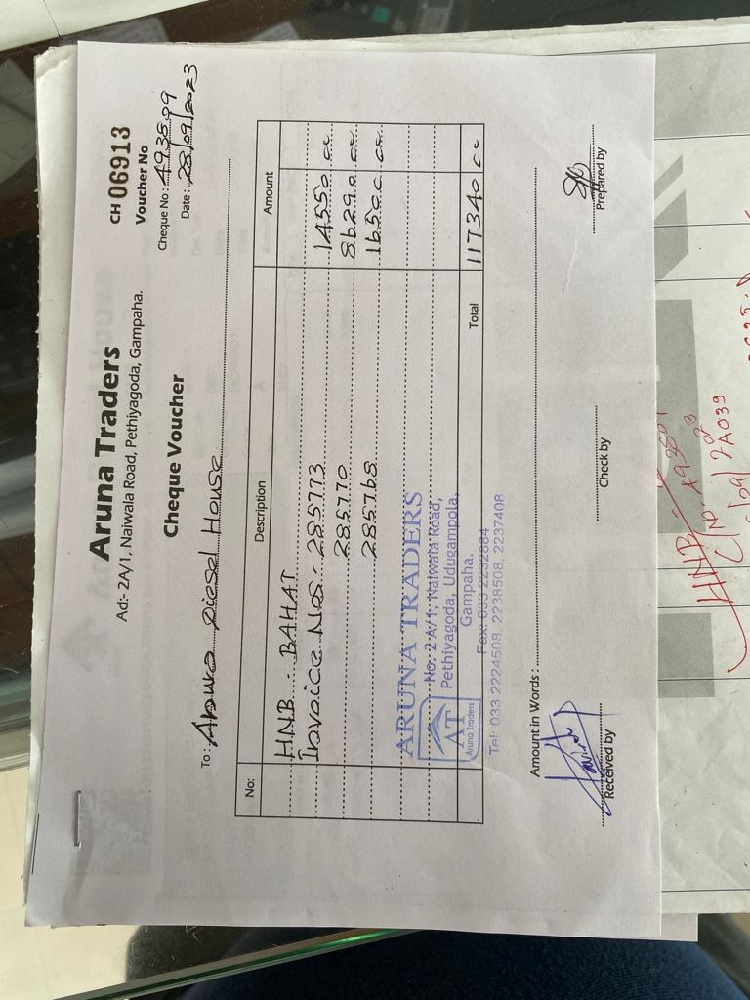 Aruna Traders
Ad:- 2A/1, Naiwala Road, Pethiyagoda, Gampaha.
CH 06913
Voucher No
Cheque Voucher
Cheque No : 493509
Date : 28/09/2023
To : Diesel House
No: Description Amount
HNB : BAHAT
Invoice Nos:- 285773 14550
285770 86290
285768 16500
Total 117340
ARUNA TRADERS
No: 2-A/1, Naiwala Road,
Pethiyagoda, Udugampola,
Gampaha.
AT
Aruna Traders
Fax: 033 2232884
Tel: 033 2224508, 2238508, 2237408
Amount in Words :
Received by
Check by
Prepared by
HNB